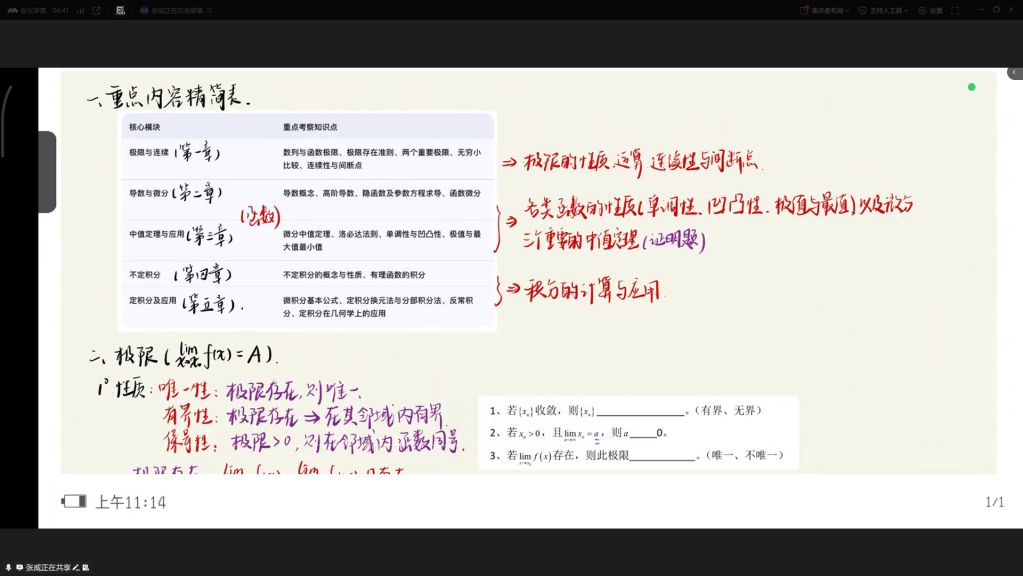 04:41
张威正在共享屏幕
演讲者布局
主持人工具
设置
一、重点内容精简表.
核心模块 重点考察知识点
极限与连续 (第一章) 数列与函数极限、极限存在准则、两个重要极限、无穷小
比较、连续性与间断点
⇒ 极限的性质、运算 连续性与间断点.
导数与微分 (第二章) 导数概念、高阶导数、隐函数及参数方程求导、函数微分
(函数)
⇒ 各类函数的性质(单调性、凹凸性、极值与最值)以及微分
三个重要的中值定理(证明题)
中值定理与应用 (第三章) 微分中值定理、洛必达法则、单调性与凹凸性、极值与最
大值最小值
不定积分 (第四章) 不定积分的概念与性质、有理函数的积分
⇒ 积分的计算与应用.
定积分及应用 (第五章). 微积分基本公式、定积分换元法与分部积分法、反常积
分、定积分在几何学上的应用
二、极限 (lim x→x₀ f(x)=A).
1° 性质: 唯一性: 极限存在,则唯一.
有界性: 极限存在 ⇒ 在其邻域内有界.
保号性: 极限>0,则在邻域内函数同号.
1、若{xₙ}收敛,则{xₙ}________。(有界、无界)
2、若xₙ>0,且lim n→∞ xₙ=a,则a____0。
3、若lim x→x₀ f(x)存在,则此极限________。(唯一、不唯一)
上午11:14
1/1
张威正在共享